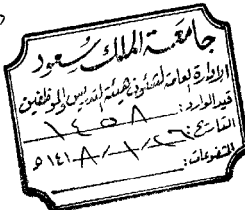 جامعة الملك سعود
الإدارة العامة لشئون هيئة التدريس والموظفين
قيد الوارد: ١٤٥٨
التاريخ: ٢٦/١/١٤١٨ هـ
المشفوعات: